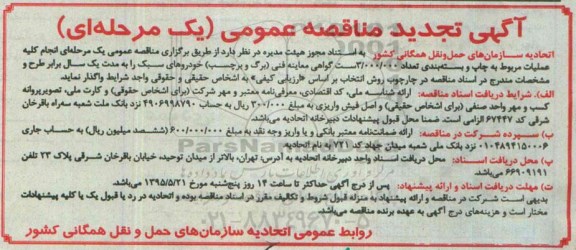 آگهی تجدید مناقصه عمومی (یک مرحله‌ای)
اتحادیه سازمان‌های حمل‌ونقل همگانی کشور به استناد مجوز هیئت مدیره در نظر دارد از طریق برگزاری مناقصه عمومی یک مرحله‌ای انجام کلیه
عملیات مربوط به چاپ و بسته‌بندی تعداد ۳/۰۰۰/۰۰۰ ست گواهی معاینه فنی (برگ و برچسب) خودروهای سبک را به مدت یک سال برابر طرح و
مشخصات مندرج در اسناد مناقصه در چارچوب روش انتخاب بر اساس «ارزیابی کیفی» به اشخاص حقیقی و حقوقی واجد شرایط واگذار نماید.
الف). شرایط دریافت اسناد مناقصه: ارائه شناسه ملی، کد اقتصادی، معرفی‌نامه معتبر و مهر شرکت (برای اشخاص حقوقی) و کارت ملی، تصویرپروانه
کسب و مهر واحد صنفی (برای اشخاص حقیقی) و اصل فیش واریزی به مبلغ ۳۰۰/۰۰۰ ریال به حساب ۴۹۰۶۹۹۸۷۹۰ نزد بانک ملت شعبه سه‌راه باقرخان
شرقی کد ۶۷۴۴۷ الزامی است. ضمنا محل قبول پیشنهادات دبیرخانه اتحادیه می‌باشد.
ب) سپرده شرکت در مناقصه: ارائه ضمانت‌نامه معتبر بانکی و یا واریز وجه نقد به مبلغ ۶۰۰/۰۰۰/۰۰۰ (ششصد میلیون ریال) به حساب جاری
۰۱۰۴۸۹۴۱۵۰۰۰۶ نزد بانک ملی شعبه میدان جهاد کد ۷۲۱ به نام اتحادیه
پ) محل دریافت اسناد: محل دریافت اسناد واحد دبیرخانه اتحادیه به آدرس: تهران، بالاتر از میدان توحید، خیابان باقرخان شرقی پلاک ۲۳ تلفن
۶۶۹۰۹۱۹۱ می‌باشد.
ت) مهلت دریافت اسناد و ارائه پیشنهاد: پس از درج آگهی حداکثر تا ساعت ۱۴ روز پنج‌شنبه مورخ ۱۳۹۵/۵/۲۱ می‌باشد.
بدیهی است شرکت در مناقصه و ارائه پیشنهاد به منزله قبول شروط و تکالیف مقرر در اسناد مناقصه بوده و اتحادیه در رد یا قبول یک یا کلیه پیشنهادات
مختار است و هزینه‌های درج آگهی به عهده برنده مناقصه می‌باشد.
روابط عمومی اتحادیه سازمان‌های حمل و نقل همگانی کشور